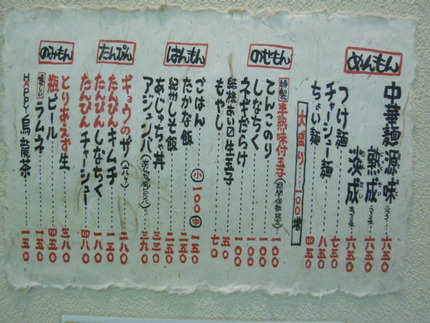 めんもん
中華麺 源味 六五〇
熟成 六五〇
淡成 六五〇
つけ麺 七五〇
チャーシュー麺 八五〇
ちょい麺 四五〇
大盛り 一〇〇増
のせもん
特製 半熟味付玉子 一〇〇
てんこのり 一〇〇
しなちく 一〇〇
ネギだらけ 一〇〇
生玉子 五〇
もやし 七〇
はんもん
ごはん 小 一〇〇 中 一五〇
たかな飯 二五〇
紀州しそ飯 二五〇
あじゅちゃ丼 三三〇
アジュンバ 三九〇
たんぴん
ギョウのザ 二八〇
たんぴんキムチ 二一〇
たんぴんしなちく 一八〇
たんぴんチャーシュー 四八〇
のみもん
とりあえず生 三八〇
瓶ビール 四五〇
ラムネ 一五〇
HAPPY烏龍茶 一五〇